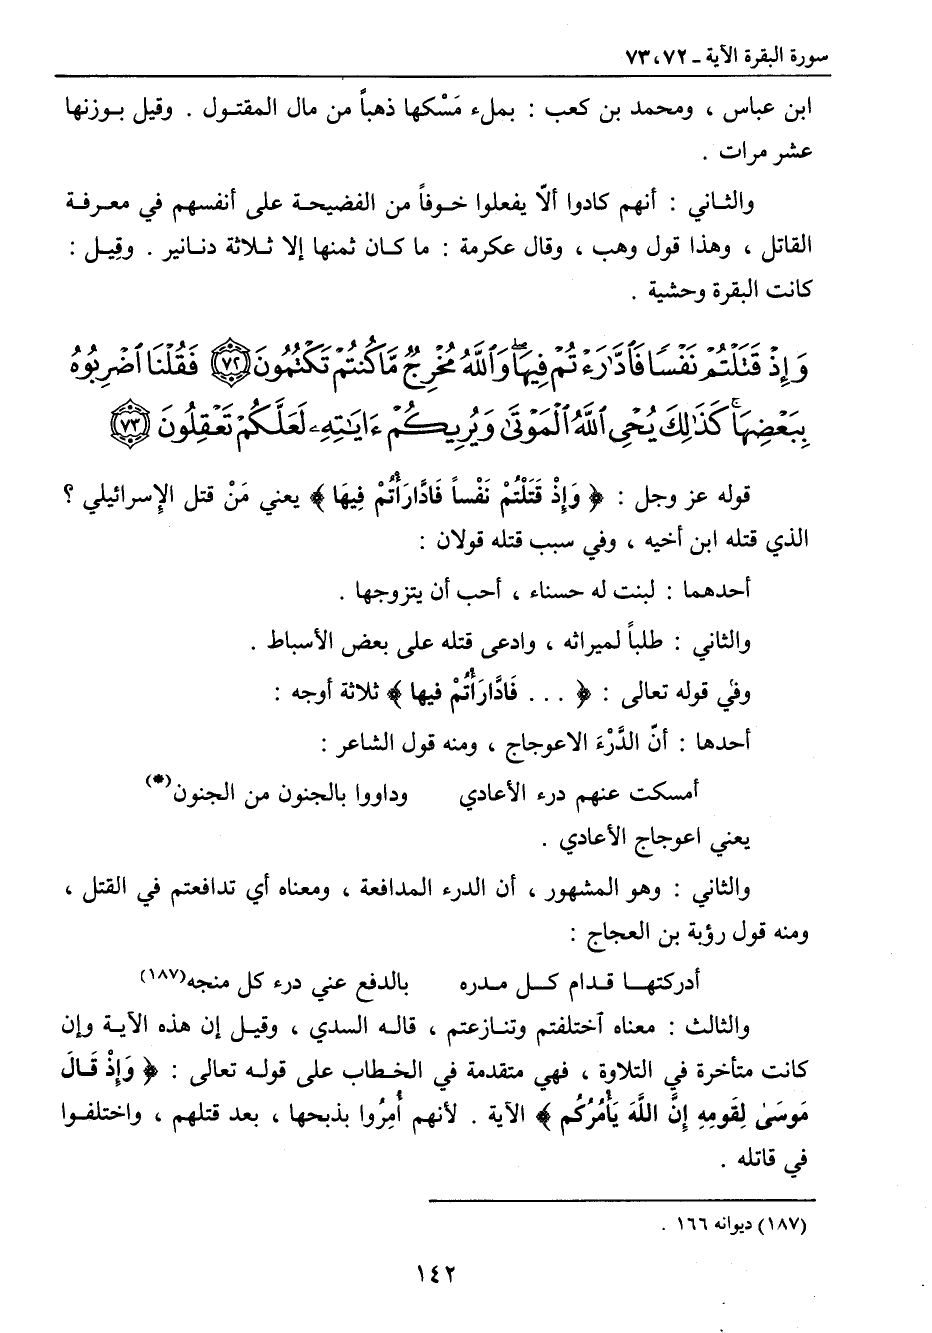 سورة البقرة الآية ـ ٧٢، ٧٣
ابن عباس ، ومحمد بن كعب : بملء مَسْكها ذهباً من مال المقتول . وقيل بوزنها
عشر مرات .
والثاني : أنهم كادوا ألاّ يفعلوا خوفاً من الفضيحة على أنفسهم في معرفة
القاتل ، وهذا قول وهب ، وقال عكرمة : ما كان ثمنها إلا ثلاثة دنانير . وقيل :
كانت البقرة وحشية .
وَإِذْ قَتَلْتُمْ نَفْسًا فَٱدَّٰرَٰٔتُمْ فِيهَا ۖ وَٱللَّهُ مُخْرِجٌ مَّا كُنتُمْ تَكْتُمُونَ ﴿٧٢﴾ فَقُلْنَا ٱضْرِبُوهُ
بِبَعْضِهَا ۚ كَذَٰلِكَ يُحْىِ ٱللَّهُ ٱلْمَوْتَىٰ وَيُرِيكُمْ ءَايَٰتِهِۦ لَعَلَّكُمْ تَعْقِلُونَ ﴿٧٣﴾
قوله عز وجل : ﴿ وَإِذْ قَتَلْتُمْ نَفْساً فَادَّارَأْتُمْ فِيهَا ﴾ يعني مَنْ قتل الإِسرائيلي ؟
الذي قتله ابن أخيه ، وفي سبب قتله قولان :
أحدهما : لبنت له حسناء ، أحب أن يتزوجها .
والثاني : طلباً لميراثه ، وادعى قتله على بعض الأسباط .
وفي قوله تعالى : ﴿ . . . فَادَّارَأْتُمْ فيها ﴾ ثلاثة أوجه :
أحدها : أنّ الدَّرْءَ الاعوجاج ، ومنه قول الشاعر :
أمسكت عنهم درء الأعادي وداووا بالجنون من الجنون(*)
يعني اعوجاج الأعادي .
والثاني : وهو المشهور ، أن الدرء المدافعة ، ومعناه أي تدافعتم في القتل ،
ومنه قول رؤبة بن العجاج :
أدركتها قدام كل مدره بالدفع عني درء كل منجه(١٨٧)
والثالث : معناه اختلفتم وتنازعتم ، قاله السدي ، وقيل إن هذه الآية وإن
كانت متأخرة في التلاوة ، فهي متقدمة في الخطاب على قوله تعالى : ﴿ وَإِذْ قَالَ
مَوسَىٰ لِقَومِهِ إِنَّ اللَّهَ يَأْمُرُكُم ﴾ الآية . لأنهم أُمِرُوا بذبحها ، بعد قتلهم ، واختلفوا
في قاتله .
(١٨٧) ديوانه ١٦٦ .
١٤٢